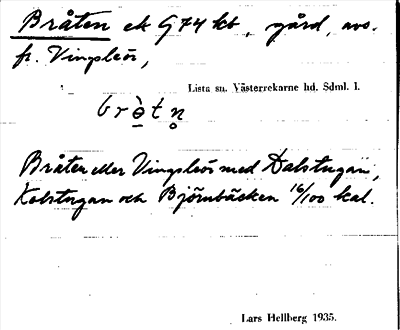 Bråten ek G74 kb, gård, avs.
fr. Vingsleör,
Lista sn. Västerrekarne hd. Sdml. l.
Bråten eller Vingsleör med Dalstugan,
Kolstugan och Björnbäcken 16/100 kal.
Lars Hellberg 1935.